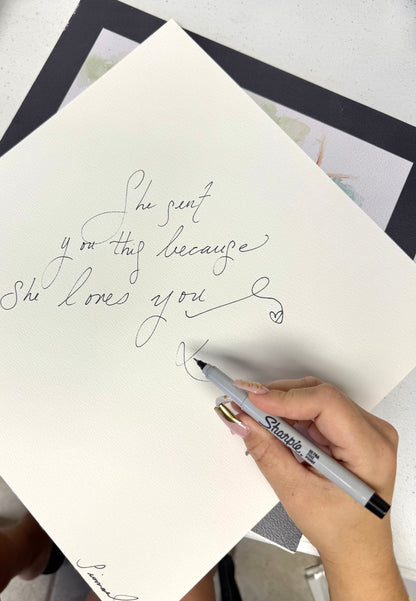 She sent
you this because
She loves you
X
Sharpie